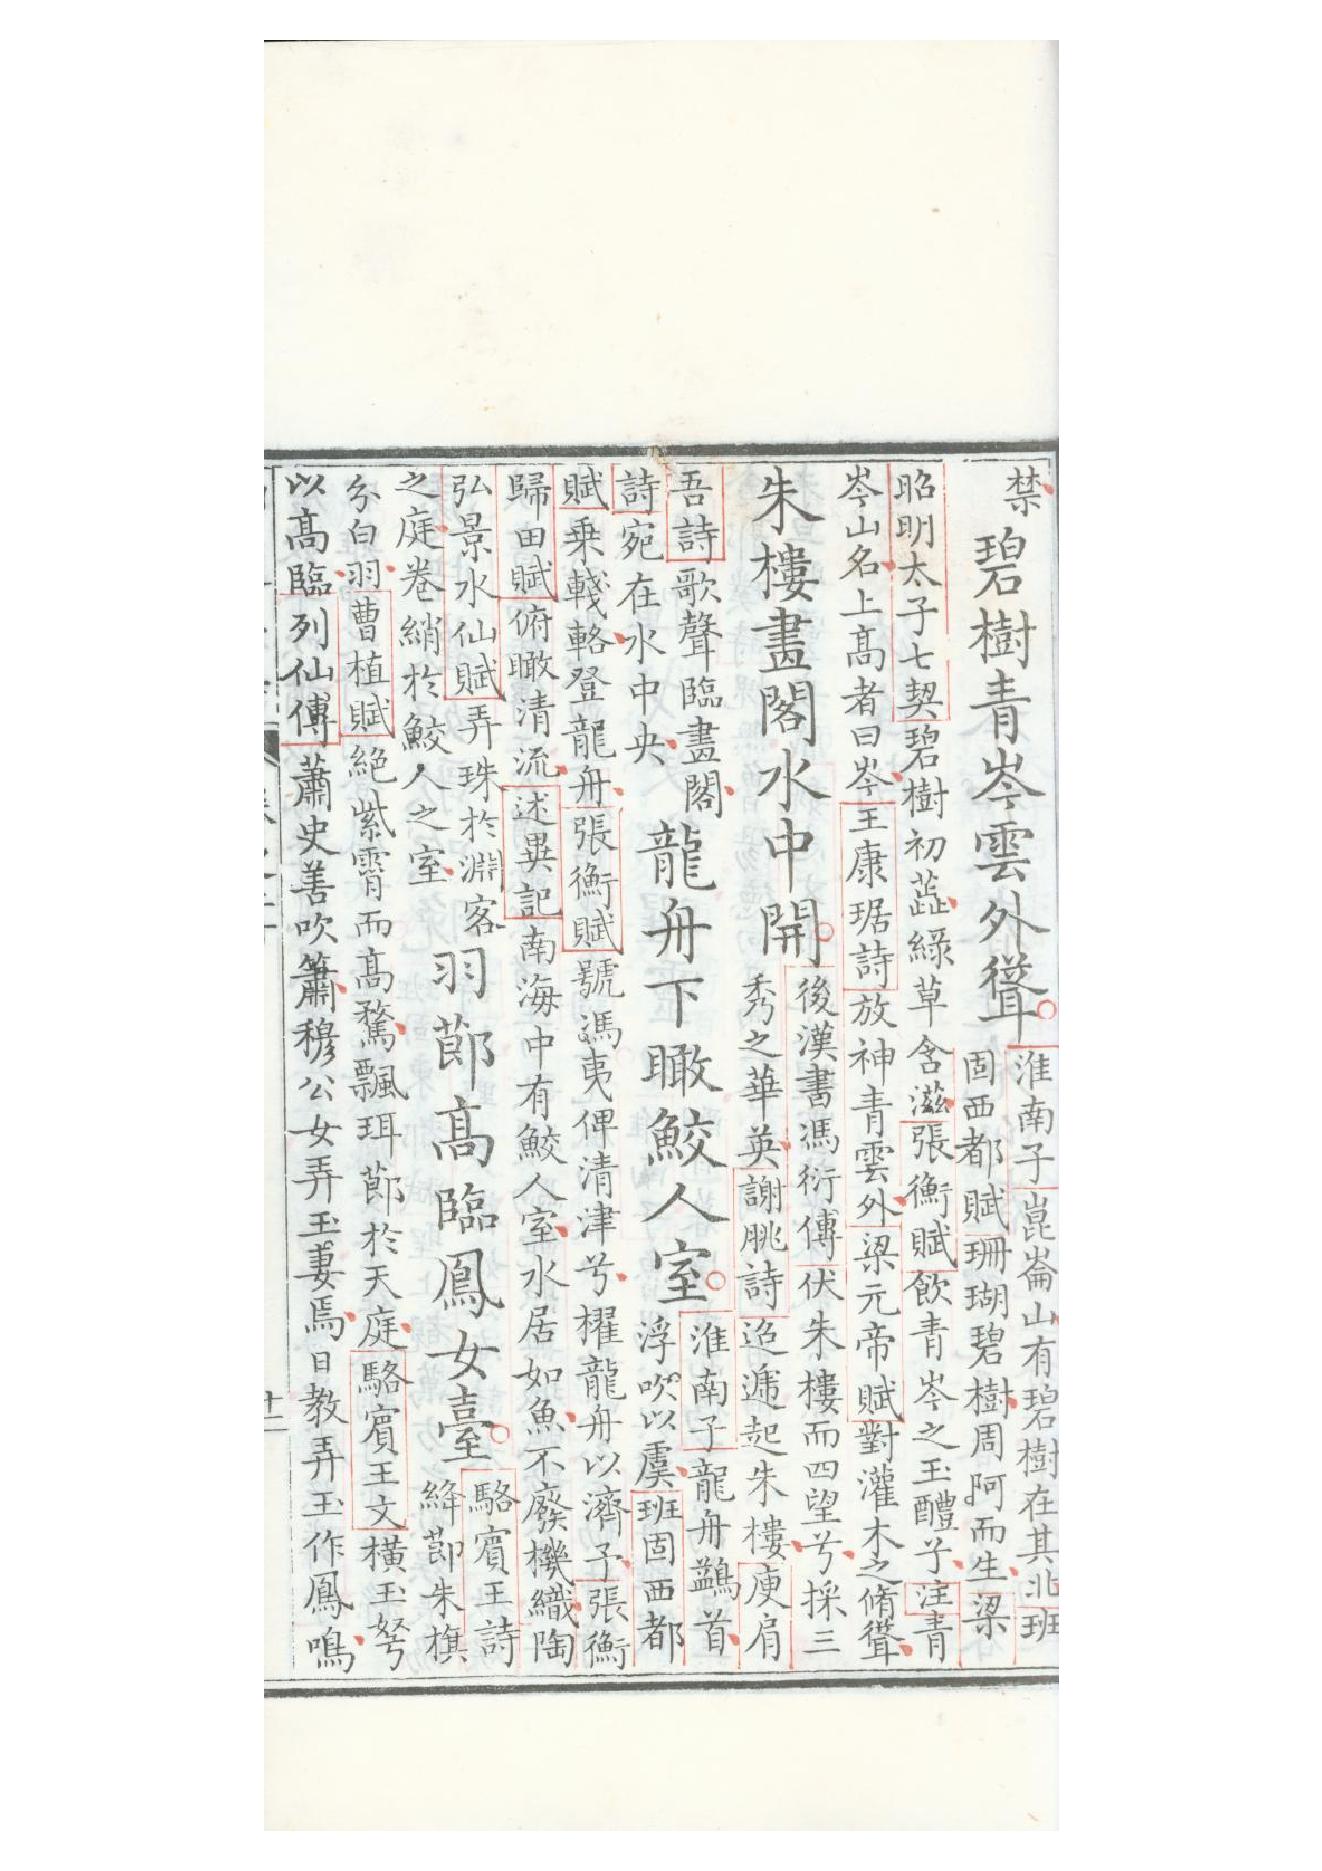 禁
碧樹青岑雲外聳
淮南子崑崙山有碧樹在其北班
固西都賦珊瑚碧樹周阿而生梁
昭明太子七契碧樹初蕋綠草含滋張衡賦飲青岑之玉醴子注青
岑山名上髙者曰岑王康琚詩放神青雲外梁元帝賦對灌木之脩聳
朱樓畫閣水中開
後漢書馮衍傳伏朱樓而四望兮採三
秀之華英謝朓詩迢遞起朱樓庾肩
吾詩歌聲臨畫閣
詩宛在水中央
龍舟下瞰鮫人室
淮南子龍舟鷁首
浮吹以虞班固西都
賦乗輚輅登龍舟張衡賦號馮夷俾清津兮櫂龍舟以濟予張衡
歸田賦俯瞰清流述異記南海中有鮫人室水居如魚不廢機織陶
弘景水仙賦弄珠於淵客
之庭卷綃於鮫人之室
羽節髙臨鳳女臺
駱賓王詩
絳節朱旗
分白羽曹植賦絕紫霄而髙騖飄珥節於天庭駱賓王文橫玉弩
以髙臨列仙傳蕭史善吹簫穆公女弄玉妻焉日教弄玉作鳳鳴